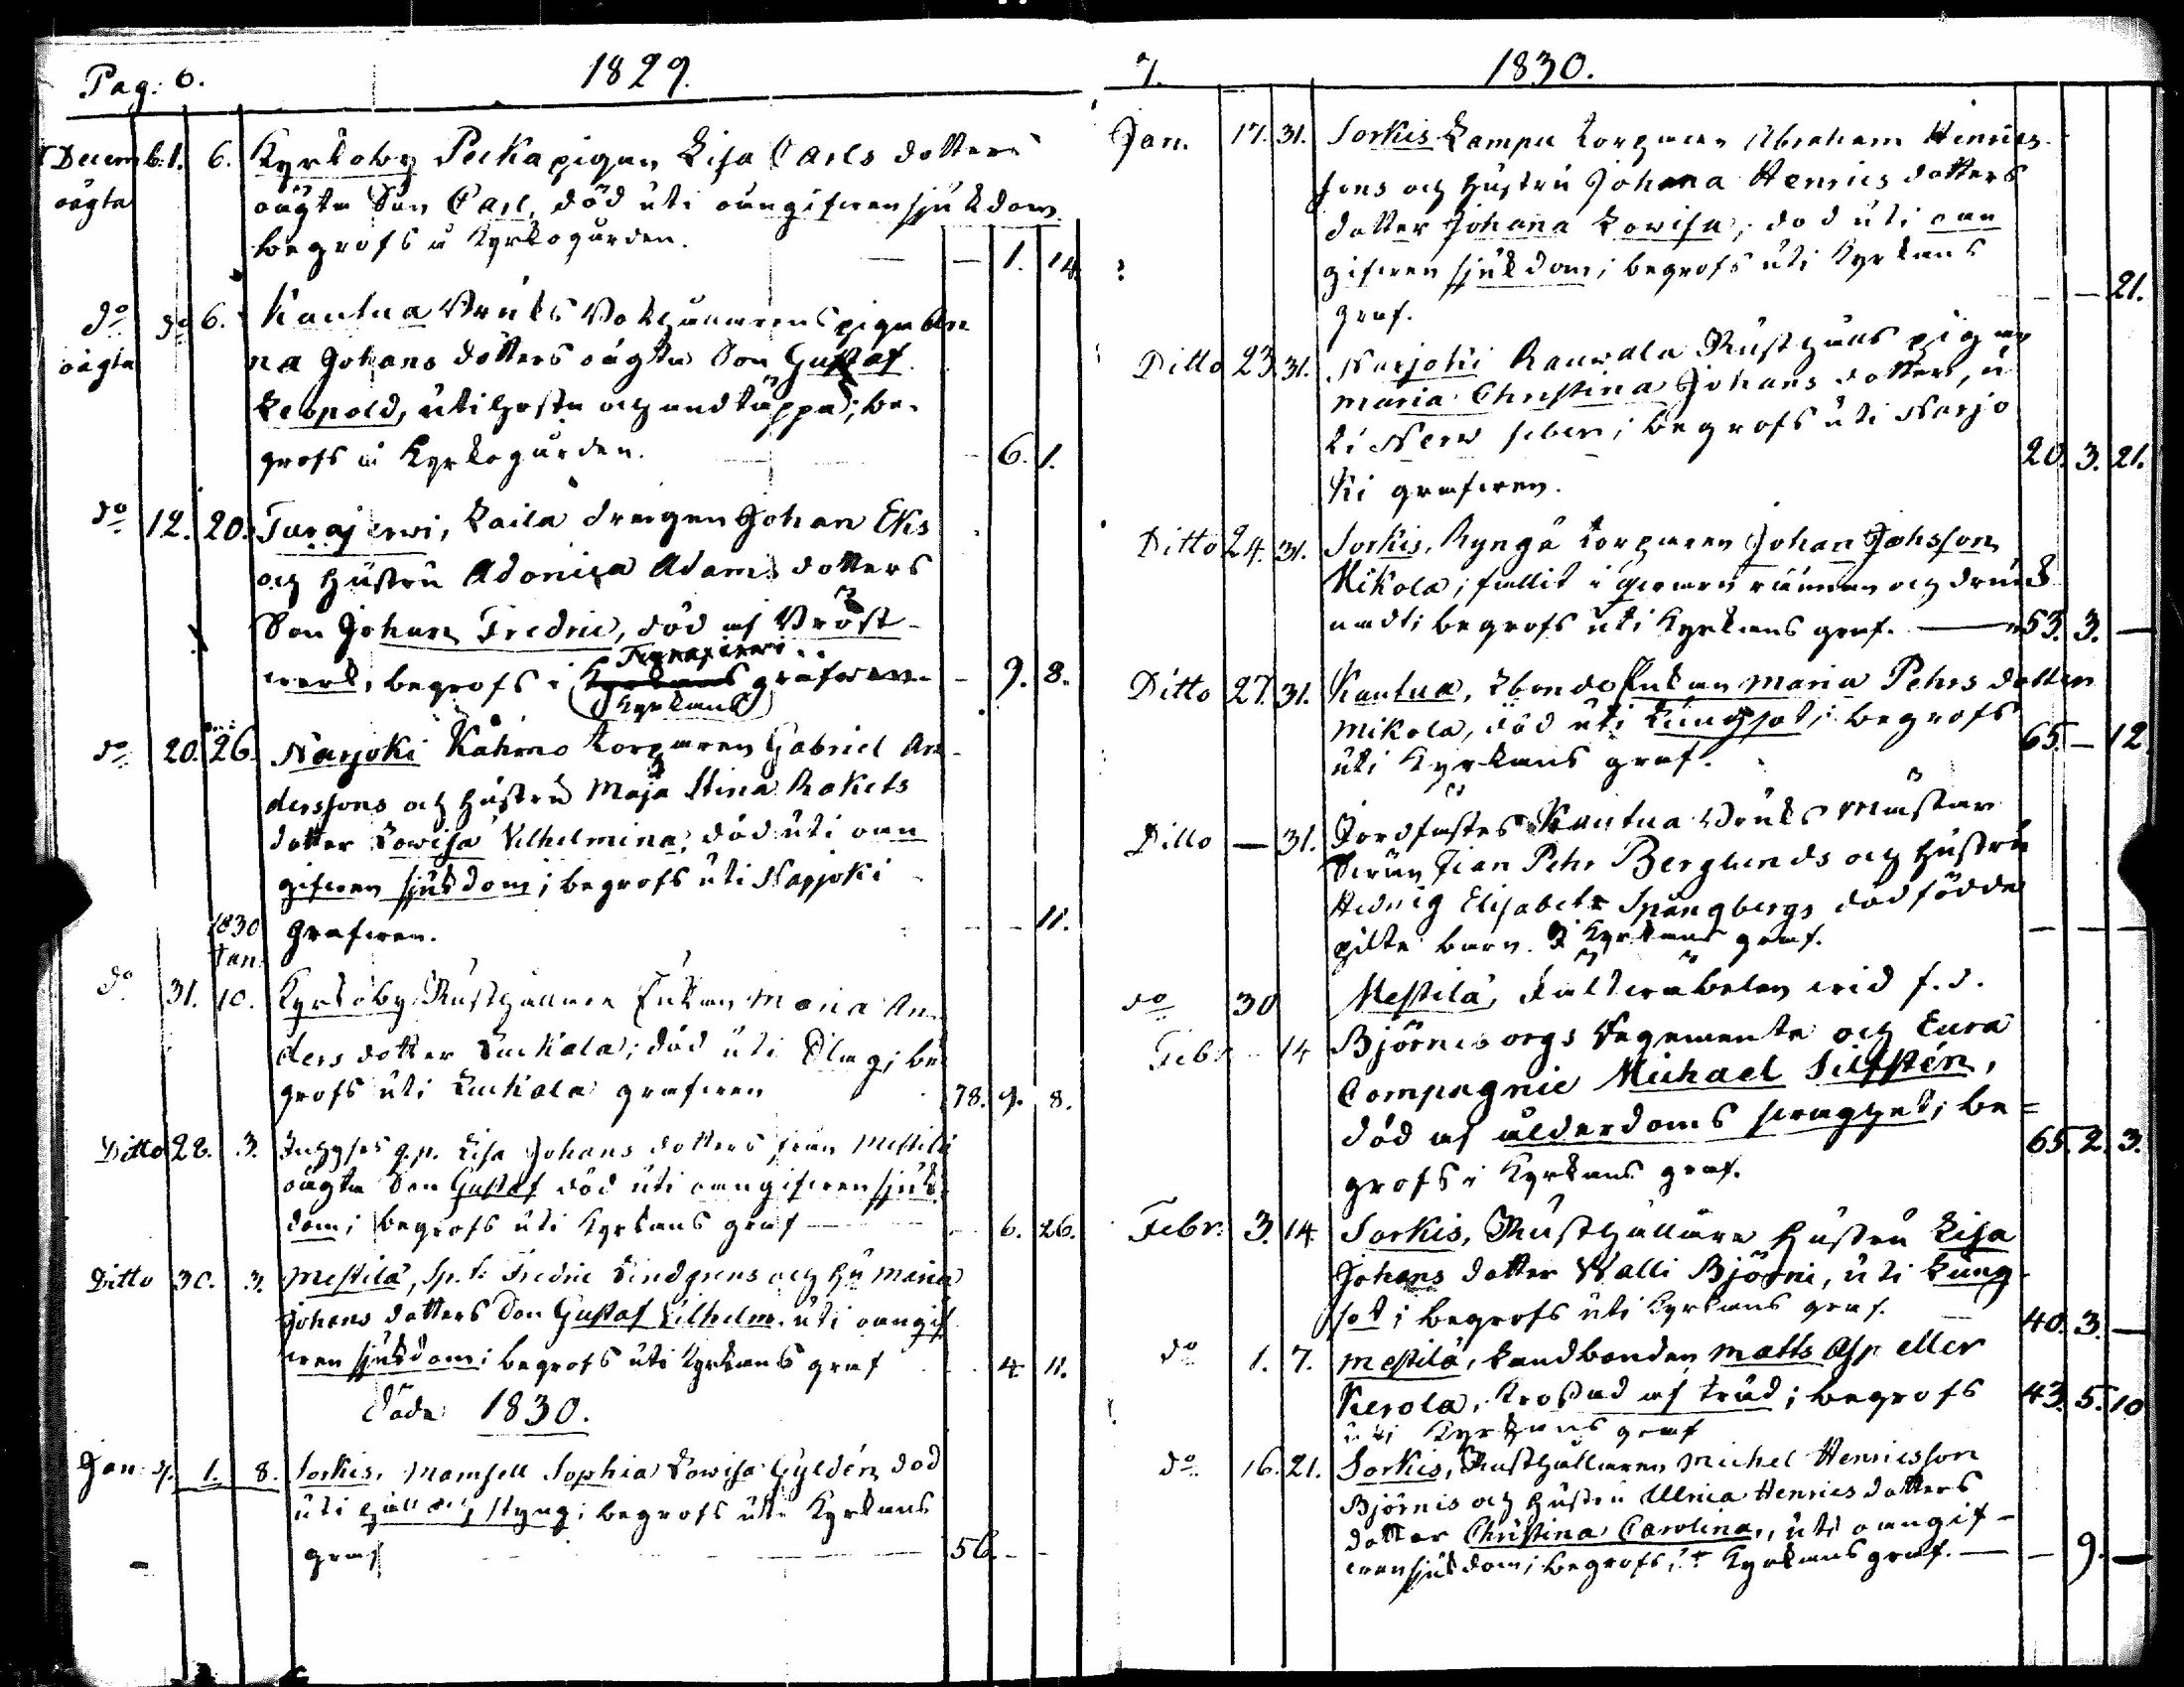 Pag: 6. 1829.
Decemb: 1. 6. Kyrkoby Peckapigan Lisa Carls dotters
oägta oägta Son Carl, död uti oangifven sjukdom
begrofs å Kyrkogården. — — 1. 14.
do do 6. Kautua Bruks Bokhållarens piga An
oägta na Johans dotters oägta Son Gustaf
Leopold, uti hosta och andtäppa; be-
grofs å Kyrkogården. — 6. 1.
do 12. 20. Turajerwi, Laila drengen Johan Eks
och hustru Adoniza Adams dotters
Son Johan Fredric, död af Bröst-
Turajerwi
werk, begrofs i grafven — 9. 8.
(Kyrkans)
do 20. 26. Narjoki Kåhmo torparen Gabriel An-
derssons och hustru Maja Stina Rakets
dotter Lowisa Vilhelmina; död uti oan
gifven sjukdom; begrofs uti Narjoki
1830 grafven. — — 11.
Jan:
do 31. 10. Kyrkoby Rusthållare Enkan Maria An-
ders dotter Luckala; död uti Slag; be
grofs uti Luckala grafven 78. 9. 8.
Ditto 28. 3. Inhyses q.p. Lisa Johans dotters från Mestilä
oägta Son Gustaf död uti oangifven sjuk-
dom; begrofs uti Kyrkans graf — 6. 26.
Ditto 30. 3. Mestilä, Sp. k. Fredric Lindgrens och hu Maria
Johans dotters Son Gustaf Vilhelm, uti oangif
ven sjukdom; begrofs uti Kyrkans graf 4 11.
Döde 1830.
Jan: 1. 8. Sorkis, Mamsell Sophia Lowisa Gyldén död
uti håll och styng; begrofs uti Kyrkans
graf — 56. — —
7. 1830.
Jan. 17. 31. Sorkis Lampu torparen Abraham Henrics
sons och hustru Johana Henrics dotters
dotter Johana Lowisa; död uti oan
gifven sjukdom; begrofs uti Kyrkans
graf. — — 21.
Ditto 23. 31. Narjoki Rauwala Rusthålls pigan
Maria Christina Johans dotter, u
ti Nerw feber; begrofs uti Narjo
ki grafven. 20. 3. 21.
Ditto 24. 31. Sorkis, Rynge torparen Johan Johsson
Nikola; fallit i qvarn rännan och drunk
nadt; begrofs uti Kyrkans graf. — 53. 3. —
Ditto 27. 31. Kautua, Enkan Maria Pehrs dotter
Mikola, död uti Lungsot; begrofs
uti Kyrkans graf. 65. — 12
Ditto — 31. Jordfästes Kautua Bruks Mästar
Pehr Berglunds och hustru
Hedvig Elisabeth Spångbergs dödfödde
gilte barn. I Kyrkans graf. — — —
do 30 Mestilä, vid f.d.
Febr. 14 Björneborgs Regemente och Eura
Compagnie Michael Silfstén,
död af ålderdoms svaghet; be=
grofs i Kyrkans graf. 65. 2. 3.
Febr: 3. 14 Sorkis, Rusthållare hustru Lisa
Johans dotter Walli Björni, uti Lung-
sot; begrofs uti Kyrkans graf. 40. 3. —
do 1. 7. Mestilä, Landbonden Matts Asp eller
Kerola, Krossad af träd; begrofs 43. 5. 10
uti Kyrkans graf
do 16. 21. Sorkis, Rusthållaren Michel Henricsson
Björnis och hustru Ulrica Henrics dotters
dotter Christina Carolina, uti oangif-
ven sjukdom; begrofs uti Kyrkans graf. — — 9. —